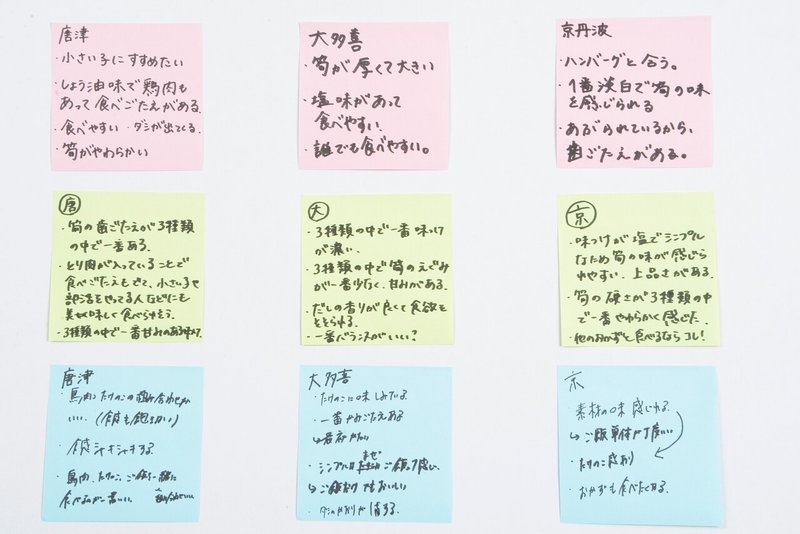 唐津
・小さい子にすすめたい
・しょう油味で鶏肉も
あって食べごたえがある.
・食べやすい ・ダシが出てる.
・筍がやわらかい
大多喜
・筍が厚くて大きい
・塩味があって
食べやすい.
・誰でも食べやすい。
京丹波
・ハンバーグと合う。
・1番淡白で筍の味
を感じられる
・あげられているから、
歯ごたえがある。
唐
・筍の歯ごたえが3種類
の中で一番ある.
・とり肉が入っていることで
食べごたえもでて、小さい子や
部活をやってる人などにも
美味しく食べられそう.
・3種類の中で一番甘みのある
大
・3種類の中で一番味つけ
が濃い.
・3種類の中で筍のえぐみ
が一番少なく、甘みがある.
・だしの香りが良くて食欲を
そそられる.
・一番バランスがいい?
京
・味つけが塩でシンプル
なため筍の味が感じら
れやすい. 上品さがある.
・筍の硬さが3種類の中
で一番やわらかく感じた.
・他のおかずと食べるならコレ!
唐津
・鳥肉とたけのこの組み合わせが
いい.
・食感シャキシャキする.
・鳥肉、たけのこ、ご飯を一緒に
食べるのが一番いい.
大多喜
・たけのこに味しみている.
・一番かみごたえある
・シンプル まぜご飯って感じ.
↳ご飯だけでもおいしい
・ダシのかおりがする.
京
・素材の味感じれる.
↳ご飯単体が丁度いい
・たけのこ感あり
・おかずも食べたくなる.